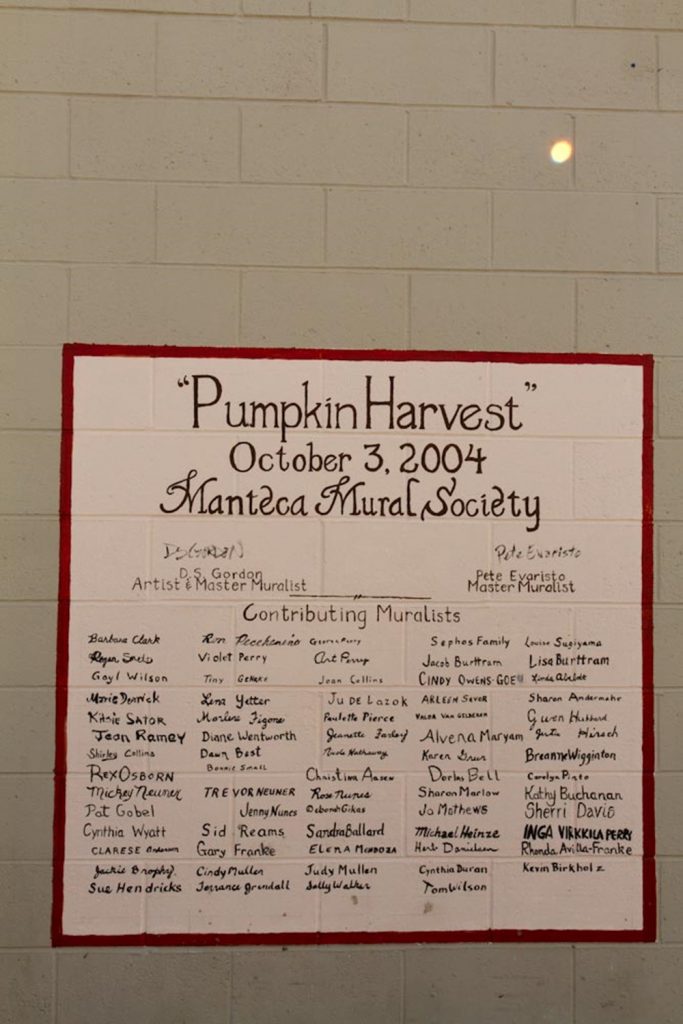 "Pumpkin Harvest"
October 3, 2004
Manteca Mural Society
DSGORDON Pete Evaristo
D.S. Gordon Pete Evaristo
Artist & Master Muralist Master Muralist
Contributing Muralists
Barbara Clark Ron Sephos Family Louise Sugiyama
Violet Perry Art Perry Jacob Burttram Lisa Burttram
Gayl Wilson Tiny Jean Collins CINDY OWENS-GOE
Marie Lena Yetter JU DE LAZOK ARLEEN Sharon
KATHIE SATOR Marlene Paulette Pierce Gwen Hubbard
Jean Ramey Diane Wentworth Jeanette Alvena Maryam Hirsch
Shirley Collins Dawn Best Hathaway Karen Breanne Wigginton
Bonnie Small
REX OSBORN Christina Aasen Dorlas Bell Carolyn Pinto
Mickey Neuner TREVOR NEUNER Rose Nunes Sharon Marlow Kathy Buchanan
Pat Gobel Jenny Nunes Deborah Gikas Jo Mathews Sherri Davis
Cynthia Wyatt Sid Reams Sandra Ballard Michael Heinze INGA VIRKKILA PERRY
CLARESE Gary Franke ELENA MENDOZA Herb Danielsen Rhonda Avilla-Franke
Jackie Brophy Cindy Mullen Judy Mullen Cynthia Duran Kevin Birkholz
Sue Hendricks Torrance Grendall Sally Walker Tom Wilson